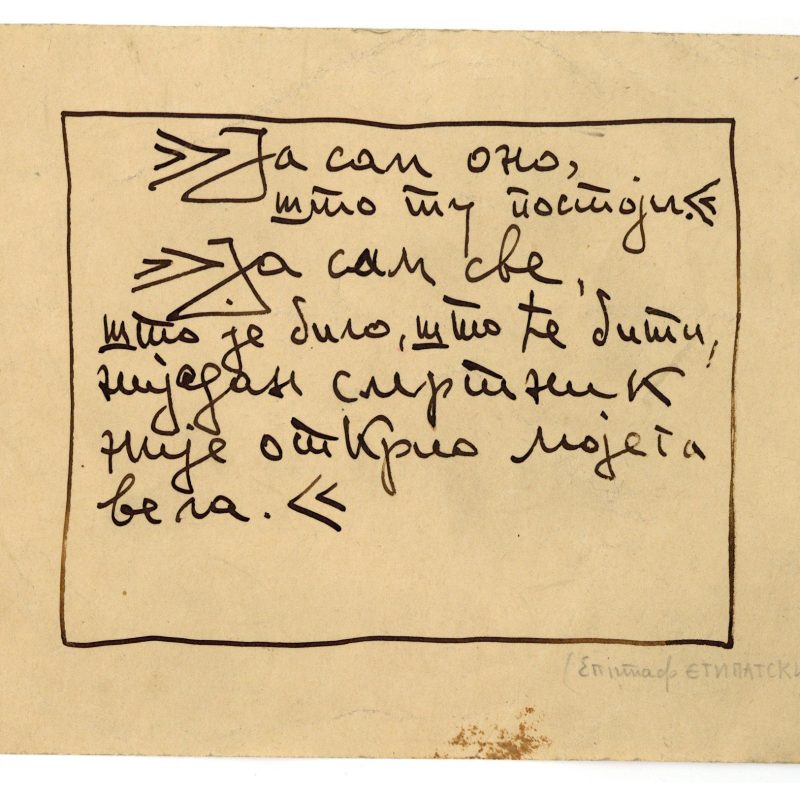 »Ја сам оно,
што ту постоји.«
»Ја сам све,
што је било, што ће бити,
ниједан смртник
није открио мојега
вела.«
(Епитаф ЕГИПАТСКИ